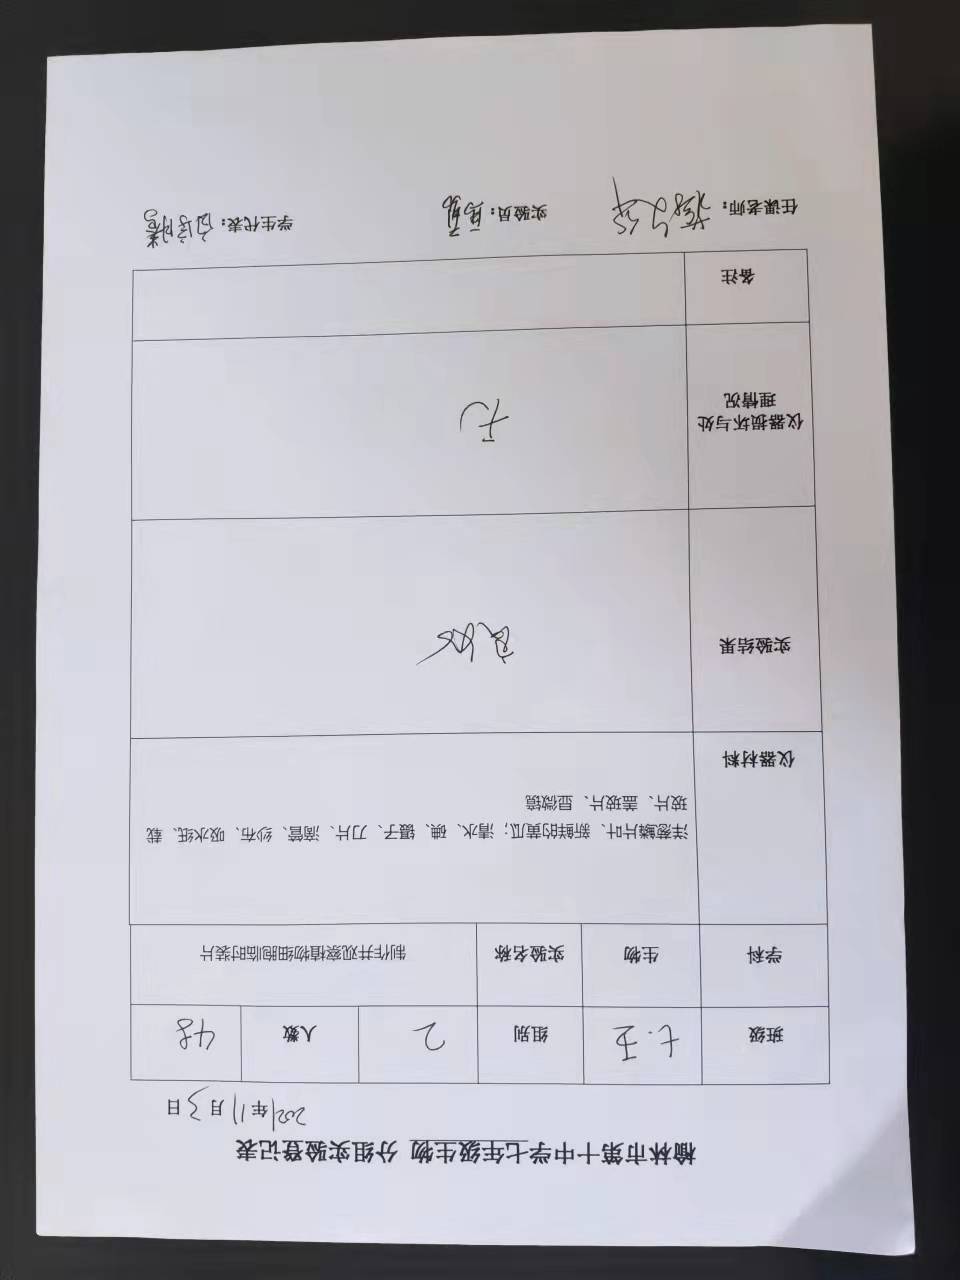 榆林市第十中学七年级生物 分组实验登记表
2021年11月3日
班级 七.五 组别 2 人数 48
学科 生物 实验名称 制作并观察植物细胞临时装片
仪器材料 洋葱鳞片叶、新鲜的黄瓜；清水、碘、镊子、刀片、滴管、纱布、吸水纸、载
玻片、盖玻片、显微镜
实验结果 良好
仪器损坏与处
理情况 无
备注
任课老师： 实验员： 学生代表：